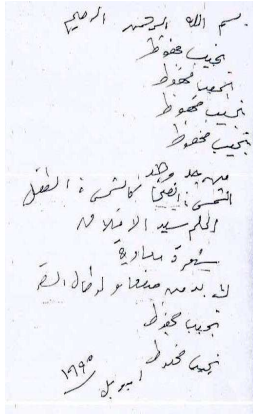 بسم الله الرحمن الرحيم
نجيب محفوظ
نجيب محفوظ
نجيب محفوظ
نجيب محفوظ
من جد وجد
الشمس
الحلم سيد الاخلاق
لا بد من صنعا ولو طال السفر
نجيب محفوظ
نجيب محفوظ
ابريل ١٩٩٥